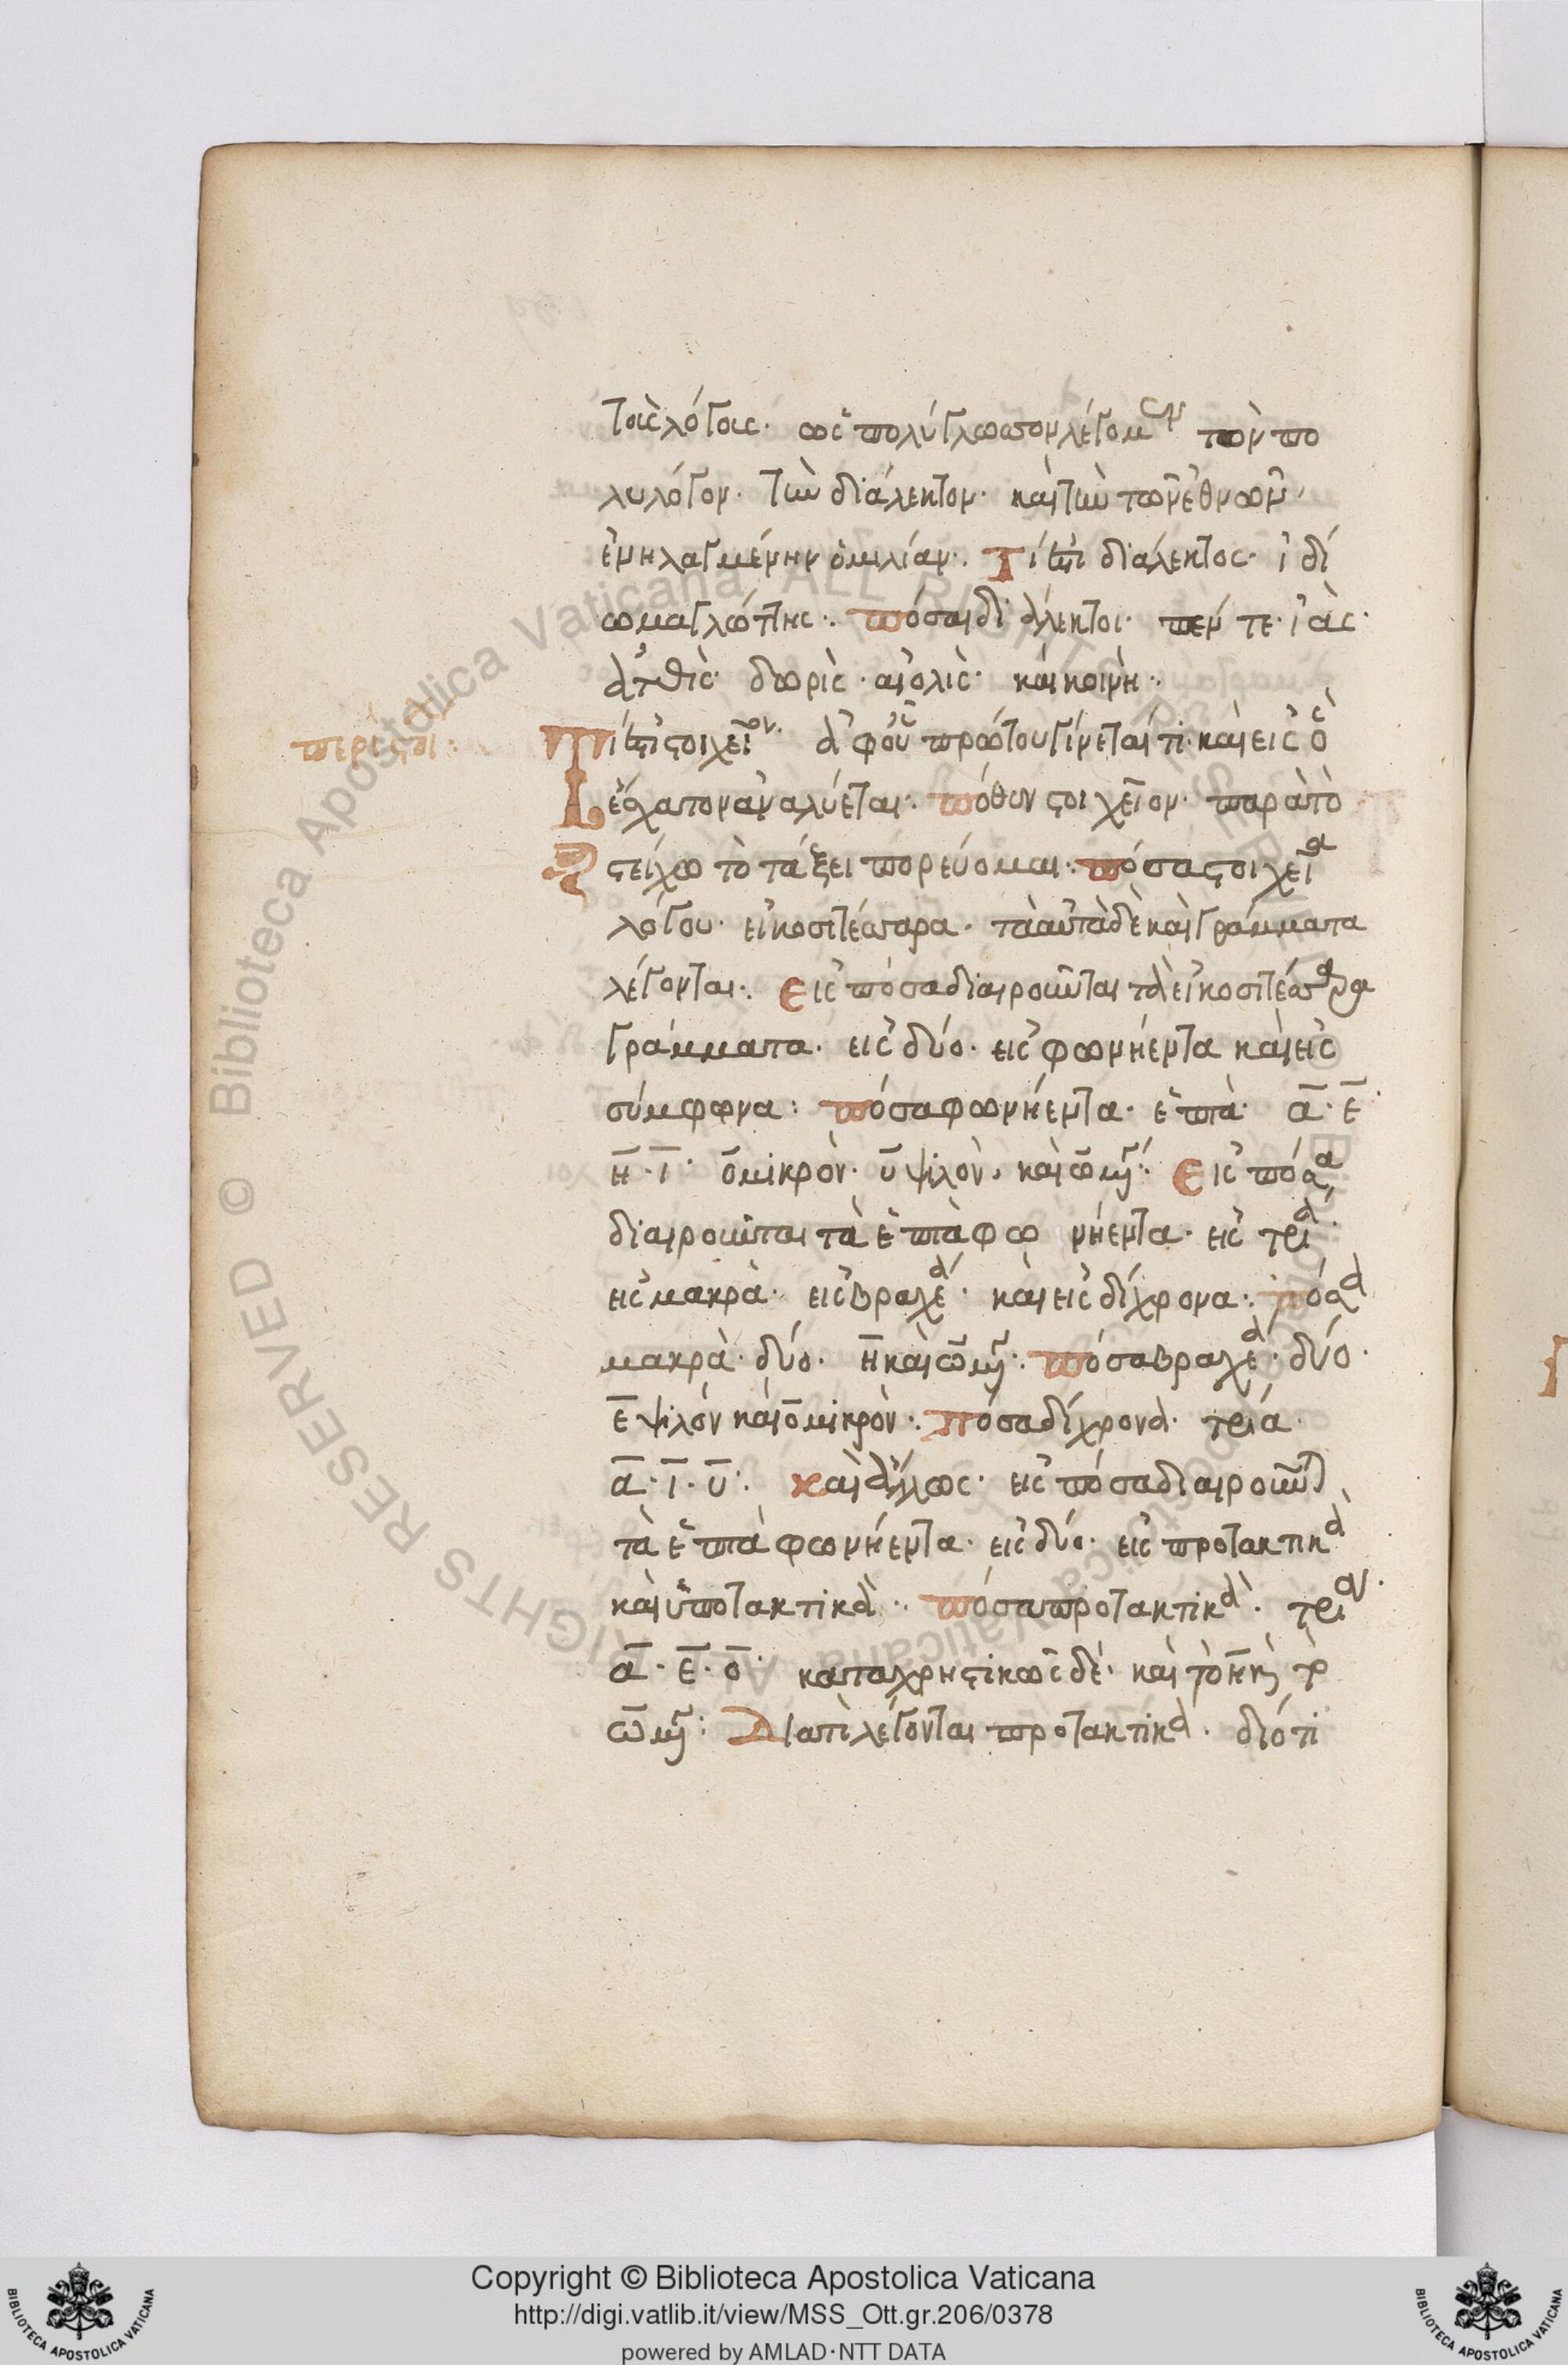 τοῖς λόγοις· ὡς πολύγλωσσον λέγομεν τὸν πο
λυλόγον· τὴν διάλεκτον· καὶ τὴν τῶν ἐθνῶν
ἐνηλαγμένην ὁμιλίαν· Τί ἐστι διάλεκτος· ἰδί
ωμα γλώττης· πόσαι διάλεκτοι· πέντε· ἰὰς·
ἀτθὶς· δωρὶς· αἰολὶς· καὶ κοινὴ·
περὶ στοι:
Τί ἐστι στοιχεῖον· ἀφ' οὗ πρώτου γίνεταί τι καὶ εἰς ὃ
ἔσχατον ἀναλύεται· πόθεν στοιχεῖον· παρὰ τὸ
στείχω τὸ τάξει πορεύομαι· πόσα στοιχεῖα
λόγου· εἰκοσιτέσσαρα· τὰ αὐτὰ δὲ καὶ γράμματα
λέγονται· Εἰς πόσα διαιροῦνται τὰ εἰκοσιτέσσαρα
γράμματα· εἰς δύο· εἰς φωνήεντα καὶ εἰς
σύμφωνα: πόσα φωνήεντα· ἑπτὰ· α· ε·
η· ι· ο μικρὸν· υ ψιλὸν· καὶ ω μέγα· Εἰς πόσα
διαιροῦνται τὰ ἑπτὰ φωνήεντα· εἰς τρία·
εἰς μακρὰ· εἰς βραχέα· καὶ εἰς δίχρονα· πόσα
μακρὰ· δύο· η καὶ ω μέγα· πόσα βραχέα· δύο·
ε ψιλὸν καὶ ο μικρὸν· πόσα δίχρονα· τρία·
α· ι· υ· καὶ ἄλλως· εἰς πόσα διαιροῦνται
τὰ ἑπτὰ φωνήεντα· εἰς δύο· εἰς προτακτικὰ
καὶ ὑποτακτικὰ· πόσα προτακτικὰ· τρία·
α· ε· ο· καταχρηστικῶς δὲ· καὶ τὸ η καὶ τὸ
ω μέγα: Διατί λέγονται προτακτικά· διότι
Copyright © Biblioteca Apostolica Vaticana
http://digi.vatlib.it/view/MSS_Ott.gr.206/0378
powered by AMLAD·NTT DATA
BIBLIOTECA APOSTOLICA VATICANA
BIBLIOTECA APOSTOLICA VATICANA